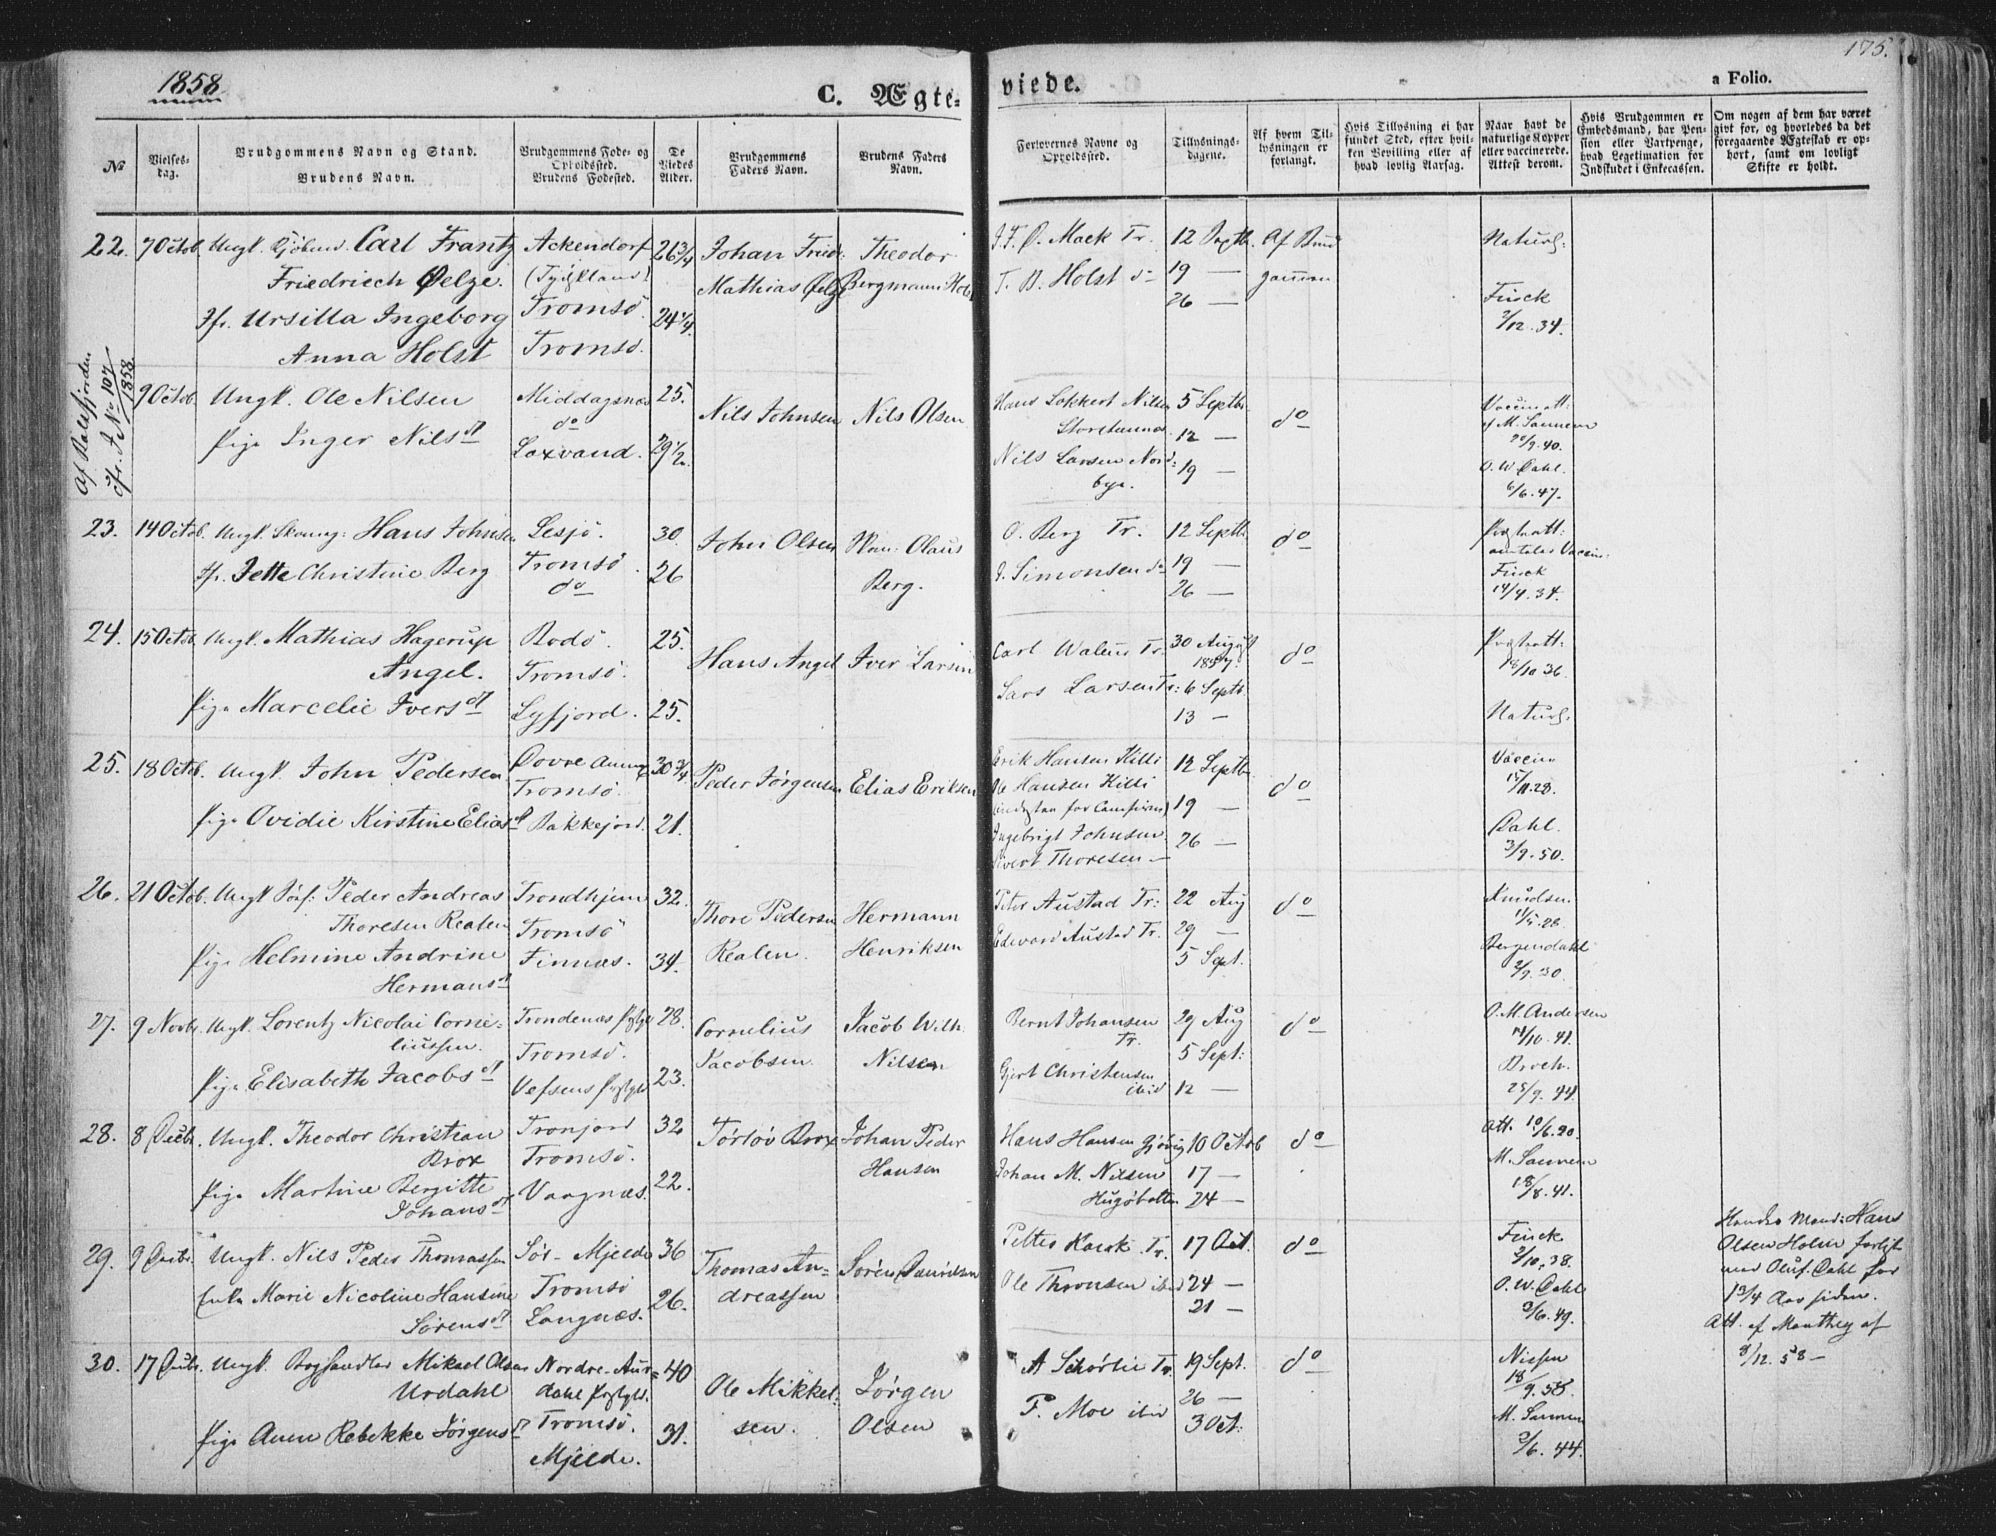 1858
175.
C. Ægte=
viede.
a Folio.
No
Vielses-
dag.
Brudgommens Navn og Stand.
Brudens Navn.
Brudgommens Føde- og
Opholdssted.
Brudens Fødested.
De
Viedes
Alder.
Brudgommens
Faders Navn.
Brudens Faders
Navn.
Forlovernes Navne og
Opholdssted.
Tillysnings-
dagene.
Af hvem Til-
lysningen er
forlangt.
Hvis Tillysning ei har
fundet Sted, efter hvil-
ken Bevilling eller af
hvad lovlig Aarsag.
Naar havt de
naturlige Kopper
eller vaccinerede.
Attest derom.
Hvis Brudgommen er
Embedsmand, har Pen-
sion eller Vartpenge,
hvad Legitimation for
Indskudet i Enkecassen.
Om nogen af dem har været
gift før, og hvorledes da det
foregaaende Ægteskab er op-
hørt, samt om lovligt
Skifte er holdt.
22. 7 Octob. Ungk. Carl Frantz Ackendorf 26 3/4 Johan Fried: Theodor J. F. Ø. Mack Tr. 12 Septb. Af Brud Naturl:
Friedriech Øelze. (Tydskland) Mathias Øelze Bergmann Holst T. B. Holst do 19 — gommen
Jfr. Ursilla Ingeborg Tromsö. 24 1/4 26 — Finck
Anna Holst Tromsö. 2/12. 34.
Af Balsfjorden
cfr. A No 107
1858
9 Octob. Ungk. Ole Nilsen Middagsnæs 25. Nils Johnsen Nils Olsen Hans Lokkert Nilsen 5 Septbr. do Vaccinatt:
do Storstennæs. 12 — af M. Sannem
pige Inger Nilsd Laxvand. 29 1/2 Nils Larsen Nord: 19 — 20/9. 40.
bye. O. W. Dahl.
6/6. 47.
23. 14 Octob. Ungk. Hans Johnsen Lesjö. 30. John Olsen Olaus O. Berg Tr. 12 Septb. do
Jfr. Jette Christine Berg Tromsö. 26 Berg. J. Simonsen do 19 — Finck
do 26 — 14/4. 34.
24. 15 Octob. Ungk. Mathias Hagerup Bodö. 25. Hans Angel Iver Larsen Carl Walnr Tr. 30 August do
Angel. Tromsö. 1857. 18/10 36
pige Marcelie Iversd Lyfjord. 25. Lars Larsen Tr: 6 Septb.
13 — Naturl.
25. 18 Octob. Ungk. John Pedersen Dovre Annex 30 3/4 Peder Jörgensen Elias Eriksen Erik Hansen Killi 12 Septb. do Vaccin
Tromsö. Ole Hansen Killi 15/11. 28.
19 —
pige Ovidie Kirstine Eliasd Bakkejord. 21. Ingebrigt Johnsen 26 — Dahl.
Sivert Thoresen — 3/9. 50.
26. 21 Octob. Ungk Peder Andreas Trondhjem 32. Thore Pedersen Hermann Peter Austad Tr: 22 Aug do Knudsen
Thoresen Realen Tromsö Realen. Henriksen Edward Austad Tr. 29 — 11/5. 28.
pige Helmine Andrine Finnæs. 34. 5 Sept. Bergendahl
Hermansd 2/9. 30.
27. 9 Novbr. Ungk. Lorentz Nicolai Corne= Trondenæs 28. Cornelius Jacob Wilh. Bernt Johansen 29 Aug do O. M. Andersen
liussen. Tromsö. Jacobsen. Nilsen Tr. 5 Sept: 14/10. 41.
pige Elisabeth Jacobsd Vefsens 23. Gjert Christensen 12 — Broch.
ibid 25/9. 44.
28. 8 Decbr. Ungk. Theodor Christian Tronjord 32 Törlöv Brox Johan Peder Hans Hansen Gjövig 10 Octob do Att. 10/6. 20.
Brox Tromsö. Hansen Johan M. Nilsen 17 — M. Sannem
pige Martine Bergitte Vargnæs. 22. Hugöbotten 24 — 18/8. 41.
Johansd
29. 9 Decbr. Ungk. Nils Peder Thomassen Sör- Mjelde 36 Thomas An= Sören Danielsen Petter Karok Tr. 17 Oct. do Finck
Enke Marie Nicoline Hansine Tromsö 26. dreassen Ole Thronsen ibid 24 — 2/10. 38.
Sörensd Langnæs. 21 — O. W. Dahl
2/6. 49.
Hendes Mand: Hans
Olsen Holm forlist
med Oluf Dahl for
1 3/4 Aar siden.
Att. af Monthey af
8/12. 58 —
30. 17 Decbr. Ungk. Mikael Olsen Nordre-Aur= 40 Ole Mikkel= Jörgen A Schörlie Tr. 19 Sept. do Nissen
Urdahl dahl sen. Olsen 26 — 18/9. 58.
pige Anne Rebekke Jörgensd Tromsö. 31. P. Moe ibid 3 Oct: M. Sannem
Mjelde. 2/6. 44.